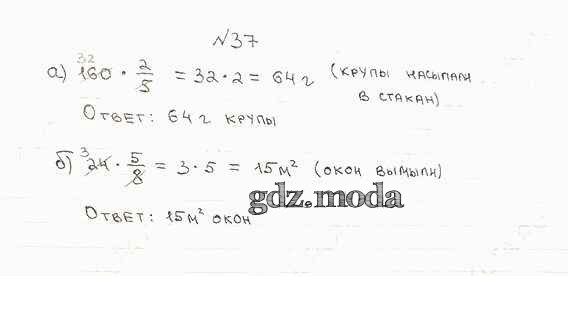 №37
а) 160 · 2/5 = 32·2 = 64 г (крупы насыпали
32
в стакан)
Ответ: 64 г крупы
б) 24 · 5/8 = 3·5 = 15 м² (окон вымыли)
3
gdz.moda
Ответ: 15 м² окон